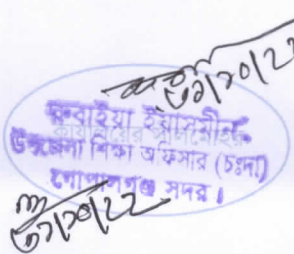 ৩১/১০/২২
রুবাইয়া ইয়াসমীন
কার্যালয়ের সীলমোহর
উপজেলা শিক্ষা অফিসার (চঃদাঃ)
গোপালগঞ্জ সদর।
৩১/১০/২২